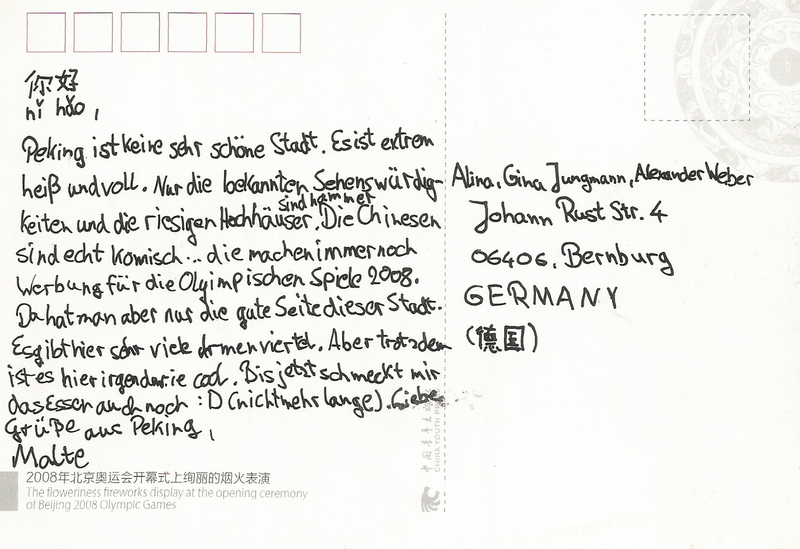 你好
nǐ hǎo,
Peking ist keine sehr schöne Stadt. Es ist extrem
heiß und voll. Nur die bekannten Sehenswürdig-
keiten und die riesigen Hochhäuser sind hammer. Die Chinesen
sind echt komisch... die machen immer noch
Werbung für die Olyimpischen Spiele 2008.
Da hat man aber nur die gute Seite dieser Stadt.
Es gibt hier sehr viele Armenviertel. Aber trotzdem
ist es hier irgendwie cool. Bis jetzt schmeckt mir
das Essen auch noch :D (nicht mehr lange). Liebe
Grüße aus Peking,
Malte
2008年北京奥运会开幕式上绚丽的烟火表演
The floweriness fireworks display at the opening ceremony
of Beijing 2008 Olympic Games
Alina, Gina Jungmann, Alexander Weber
Johann Rust Str. 4
06406, Bernburg
GERMANY
(德国)